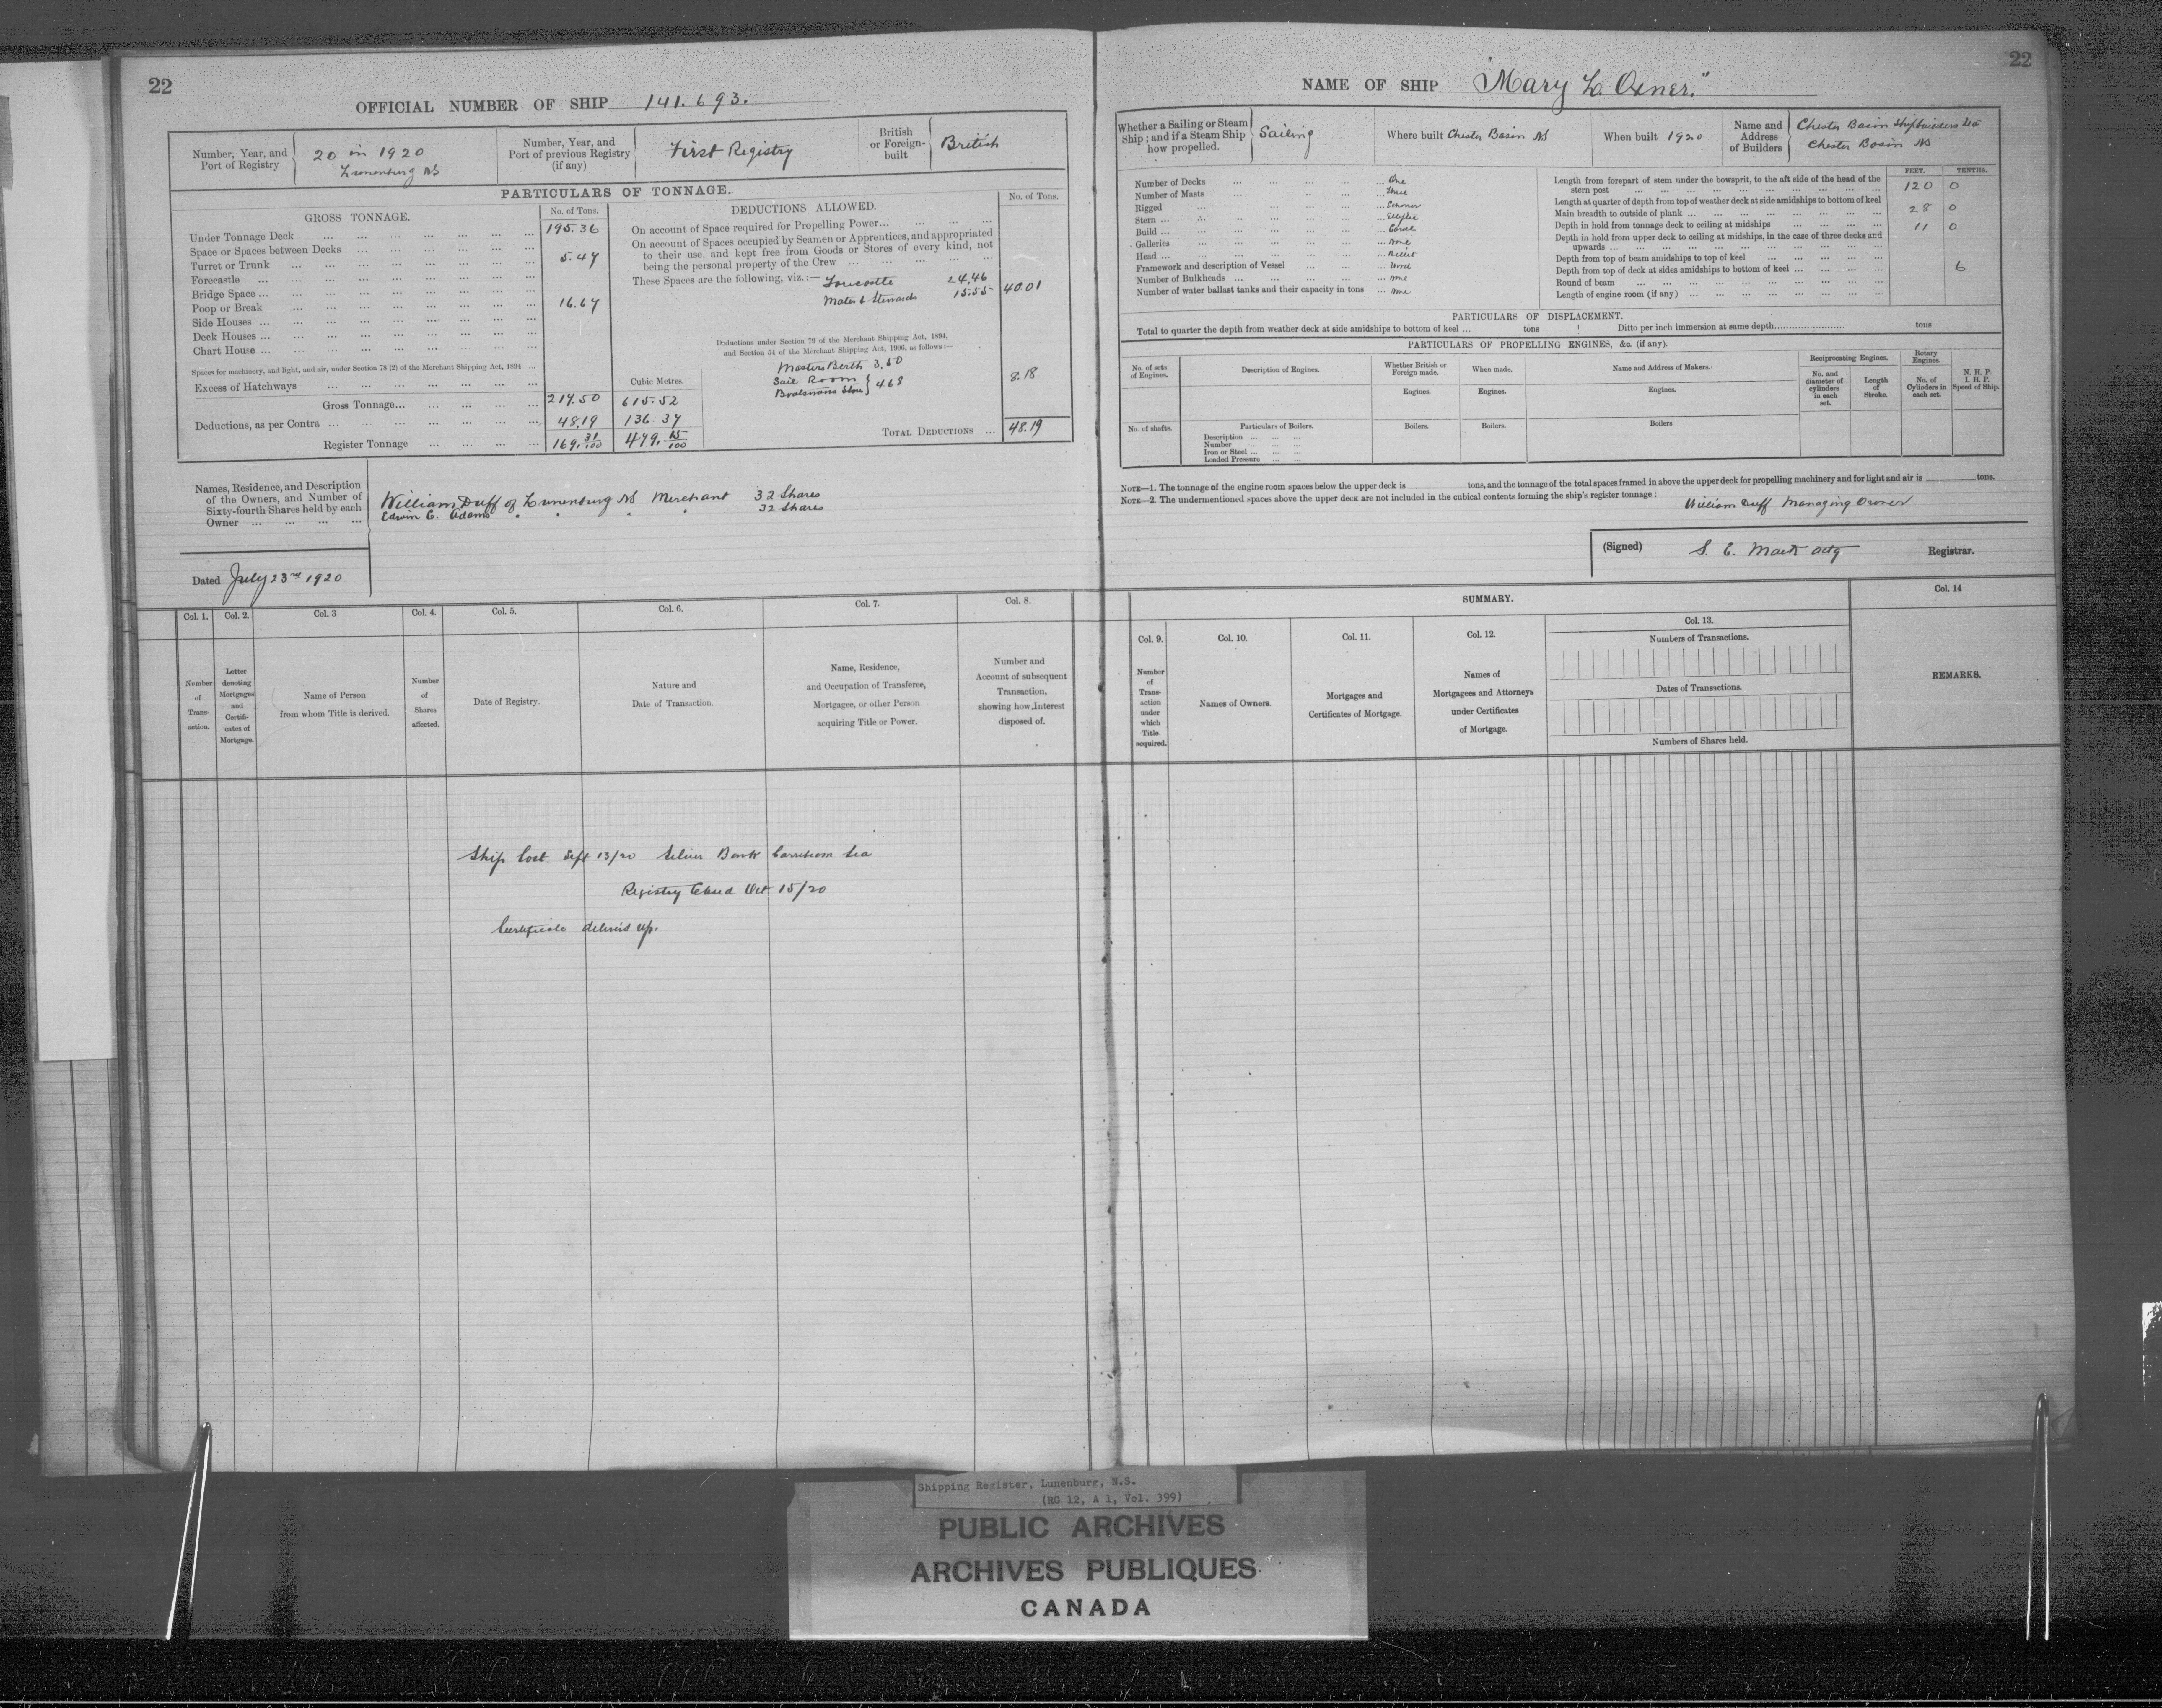 22
OFFICIAL NUMBER OF SHIP 141.693.
Number, Year, and Port of Registry
20 in 1920
Lunenburg NS
Number, Year, and Port of previous Registry (if any)
First Registry
British or Foreign-built
British
PARTICULARS OF TONNAGE.
GROSS TONNAGE.
No. of Tons.
Under Tonnage Deck 195.36
Space or Spaces between Decks
Turret or Trunk 5.47
Forecastle
Bridge Space
Poop or Break 16.67
Side Houses
Deck Houses
Chart House
Spaces for machinery, and light, and air, under Section 78 (2) of the Merchant Shipping Act, 1894
Excess of Hatchways
Cubic Metres.
Gross Tonnage 217.50 615.52
Deductions, as per Contra 48.19 136.37
Register Tonnage 169.31/100 479.15/100
DEDUCTIONS ALLOWED.
No. of Tons.
On account of Space required for Propelling Power
On account of Spaces occupied by Seamen or Apprentices, and appropriated
to their use, and kept free from Goods or Stores of every kind, not
being the personal property of the Crew
These Spaces are the following, viz.:— Forecastle 24,46
Mates & Stewards 15.55 40.01
Deductions under Section 79 of the Merchant Shipping Act, 1894,
and Section 54 of the Merchant Shipping Act, 1906, as follows:—
Masters Berth 3,50
Sail Room
Boatswains Store 4.68
8.18
TOTAL DEDUCTIONS 48.19
Names, Residence, and Description
of the Owners, and Number of
Sixty-fourth Shares held by each
Owner
William Duff of Lunenburg NS Merchant 32 Shares
Edwin C. Adams " " " 32 Shares
Dated July 23rd 1920
Col. 1. Col. 2. Col. 3 Col. 4. Col. 5. Col. 6. Col. 7. Col. 8.
Number of Trans-action.
Letter denoting Mortgages and Certifi-cates of Mortgage.
Name of Person from whom Title is derived.
Number of Shares affected.
Date of Registry.
Nature and Date of Transaction.
Name, Residence, and Occupation of Transferee, Mortgagee, or other Person acquiring Title or Power.
Number and Account of subsequent Transaction, showing how Interest disposed of.
Ship lost Sept 13/20 Silver Bank Carribean Sea
Registry Closed Oct 15/20
Certificate delivered up.
22
NAME OF SHIP "Mary L. Oxner."
Whether a Sailing or Steam Ship; and if a Steam Ship how propelled.
Sailing
Where built Chester Basin NS
When built 1920
Name and Address of Builders
Chester Basin Shipbuilders Ltd
Chester Basin NS
Number of Decks One
Number of Masts Three
Rigged Schooner
Stern Elliptic
Build Carvel
Galleries None
Head Billet
Framework and description of Vessel Wood
Number of Bulkheads None
Number of water ballast tanks and their capacity in tons None
FEET. TENTHS.
Length from forepart of stem under the bowsprit, to the aft side of the head of the
stern post 120 0
Length at quarter of depth from top of weather deck at side amidships to bottom of keel
Main breadth to outside of plank 28 0
Depth in hold from tonnage deck to ceiling at midships 11 0
Depth in hold from upper deck to ceiling at midships, in the case of three decks and
upwards
Depth from top of beam amidships to top of keel
Depth from top of deck at sides amidships to bottom of keel
Round of beam 6
Length of engine room (if any)
PARTICULARS OF DISPLACEMENT.
Total to quarter the depth from weather deck at side amidships to bottom of keel ... tons Ditto per inch immersion at same depth tons
PARTICULARS OF PROPELLING ENGINES, &c. (if any).
No. of sets of Engines.
Description of Engines.
Whether British or Foreign made.
When made.
Name and Address of Makers.
Reciprocating Engines.
Rotary Engines.
N. H. P.
I. H. P.
Speed of Ship.
No. and diameter of cylinders in each set.
Length of Stroke.
No. of Cylinders in each set.
Engines. Engines. Engines.
No. of shafts.
Particulars of Boilers.
Boilers. Boilers. Boilers.
Description
Number
Iron or Steel
Loaded Pressure
NOTE—1. The tonnage of the engine room spaces below the upper deck is tons, and the tonnage of the total spaces framed in above the upper deck for propelling machinery and for light and air is tons.
NOTE—2. The undermentioned spaces above the upper deck are not included in the cubical contents forming the ship's register tonnage:
William Duff Managing Owner
(Signed) Actg Registrar.
SUMMARY.
Col. 9. Col. 10. Col. 11. Col. 12. Col. 13. Col. 14
Number of Trans-action under which Title acquired.
Names of Owners.
Mortgages and Certificates of Mortgage.
Names of Mortgagees and Attorneys under Certificates of Mortgage.
Numbers of Transactions.
Dates of Transactions.
Numbers of Shares held.
REMARKS.
Shipping Register, Lunenburg, N.S.
(RG 12, A 1, Vol. 399)
PUBLIC ARCHIVES
ARCHIVES PUBLIQUES
CANADA